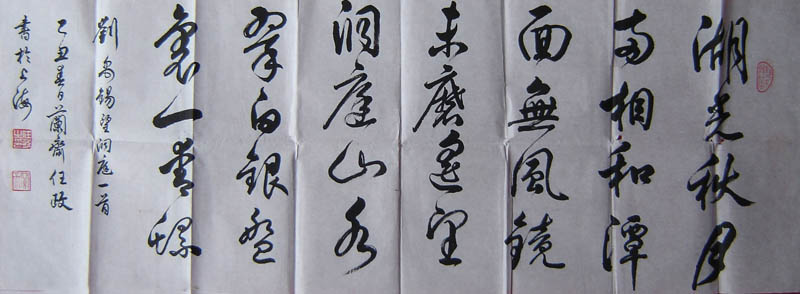 湖光秋月
两相和潭
面無風鏡
未磨遙望
洞庭山水
翠白銀盤
裏一青螺
劉禹錫望洞庭一首
乙丑春日蘭齋任政
書於上海